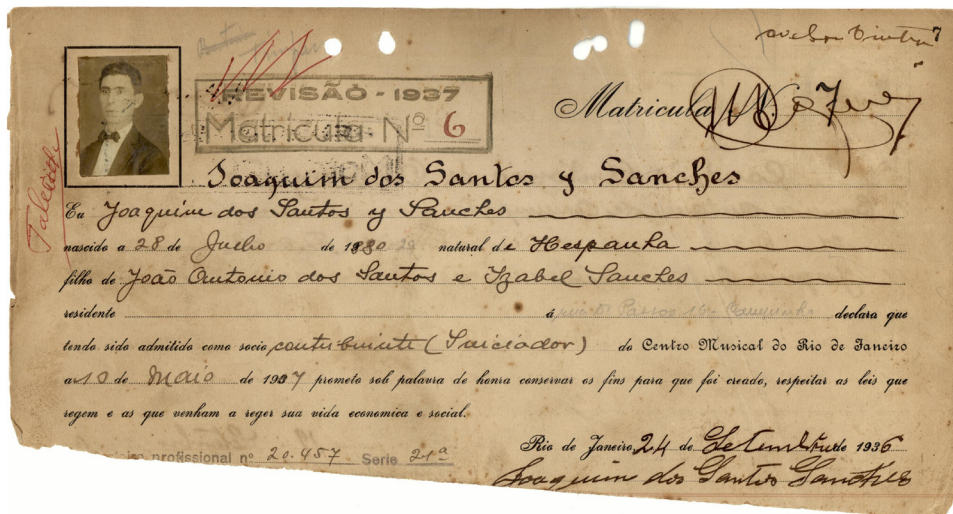 7
REVISÃO - 1937
Matricula Nº 6
Matricula
Joaquim dos Santos y Sanches
Eu Joaquim dos Santos y Sanches
nascido a 28 de Julho de 1880 natural de Hespanha
filho de João Antonio dos Santos e Izabel Sanches
residente á declara que
tendo sido admitido como socio contribuinte (Iniciador) do Centro Musical do Rio de Janeiro
a 10 de Maio de 1907 prometo sob palavra de honra conservar os fins para que foi creado, respeitar as leis que
regem e as que venham a reger sua vida economica e social.
Rio de Janeiro, 24 de Setembro de 1936
profissional nº 20.457 Serie 21ª
Joaquim dos Santos Sanches